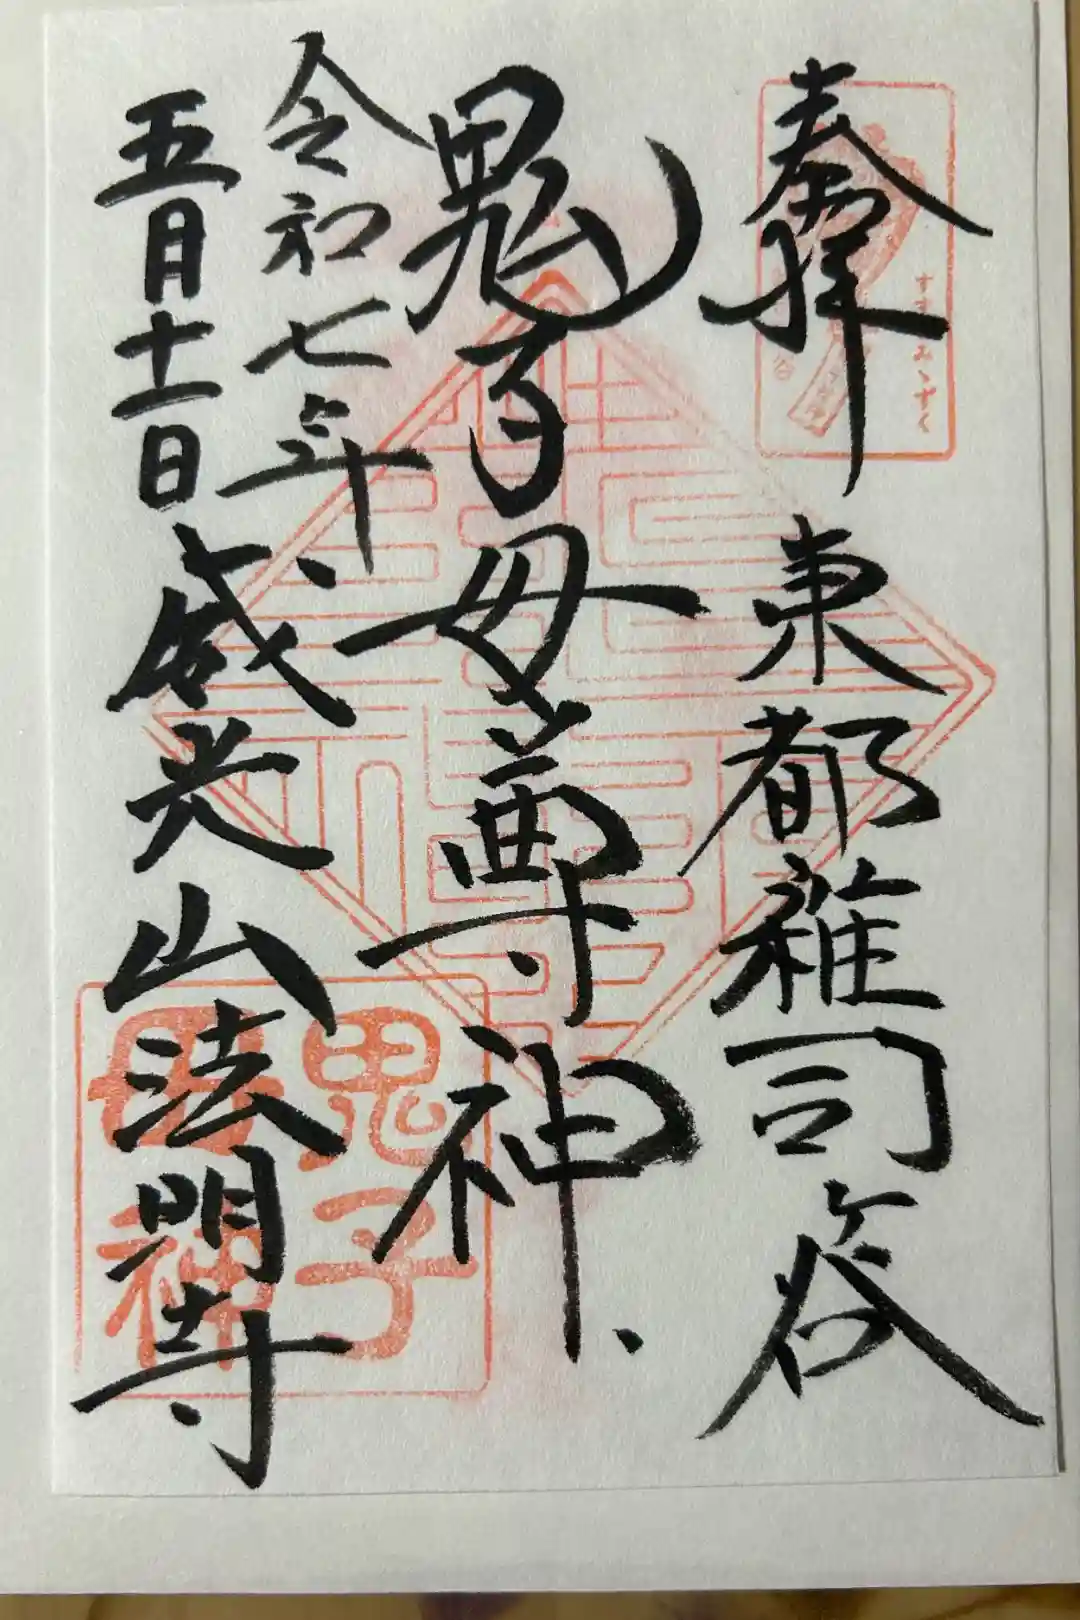 奉拝 東都雑司ケ谷
すすきみゝずく
鬼子母尊神
令和七年
五月十一日 威光山法明寺
鬼子
母神